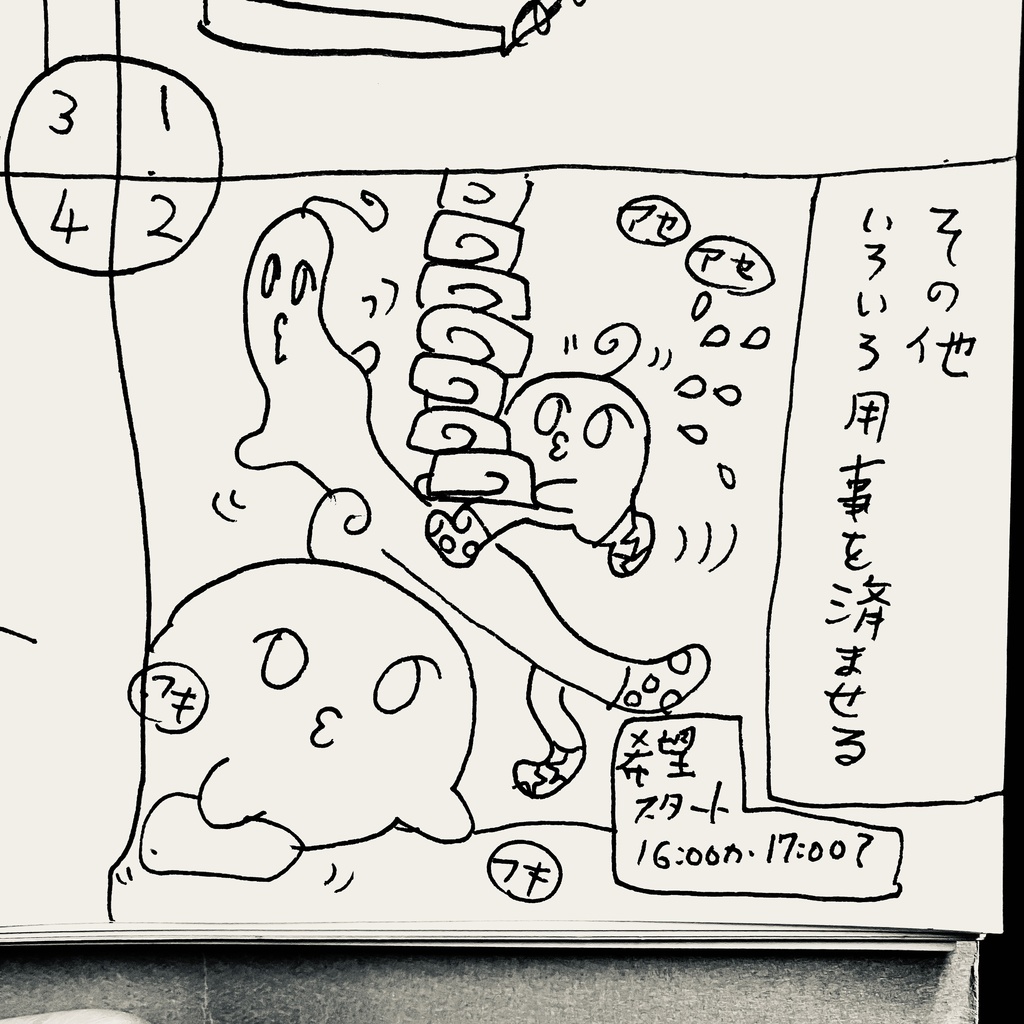 3
1
4
2
その他
いろいろ用事を済ませる
アセ
アセ
フキ
フキ
希望
スタート
16:00か17:00?